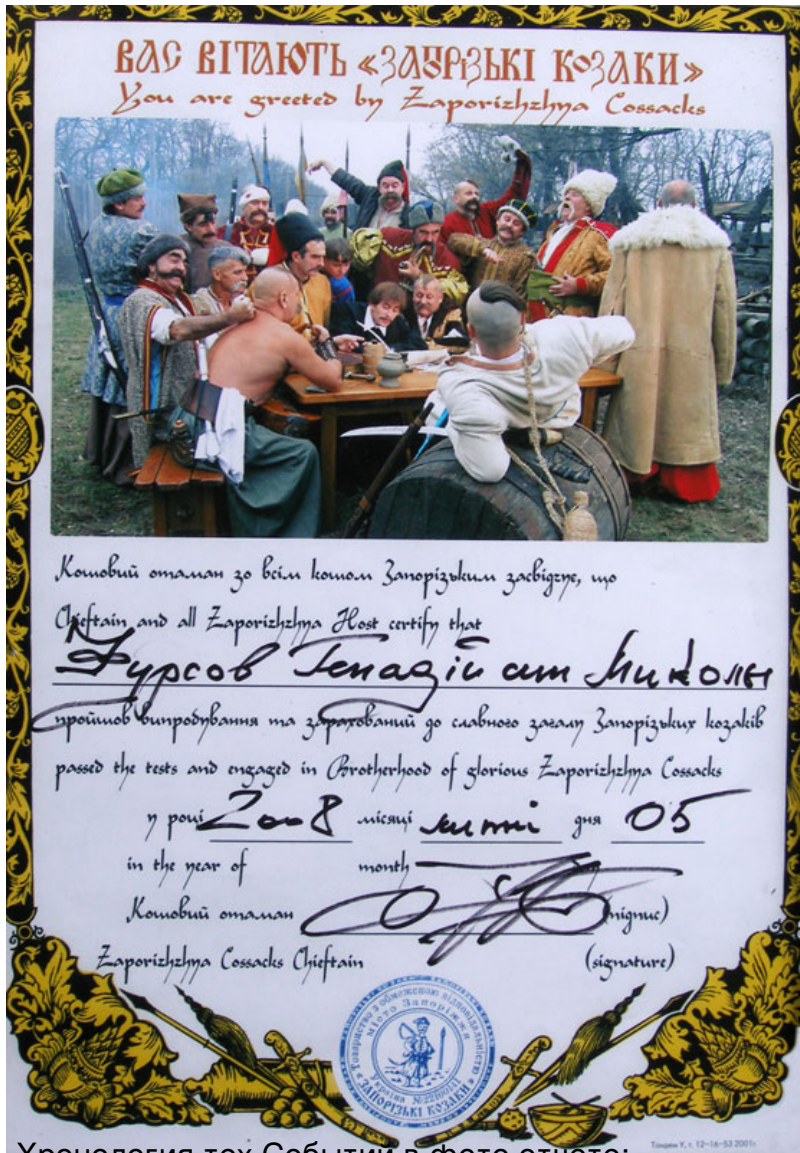 ВАС ВІТАЮТЬ «ЗАПОРІЗЬКІ КОЗАКИ»
You are greeted by Zaporizhzhya Cossacks
Кошовий отаман зо всім кошом Запорізьким засвідчує, що
Chieftain and all Zaporizhzhya Host certify that
Фурсов Генадій син Миколи
пройшов випробування та зарахований до славного загалу Запорізьких козаків
passed the tests and engaged in Brotherhood of glorious Zaporizhzhya Cossacks
у році 2008 місяці липні дня 05
in the year of month
Кошовий отаман (підпис)
Zaporizhzhya Cossacks Chieftain (signature)
Товариство з обмеженою відповідальністю
місто Запоріжжя
Україна
«ЗАПОРІЗЬКІ КОЗАКИ»
Тандем У, т. 12-16-53 2001г.
Хронология тех Событий в фото отчете: